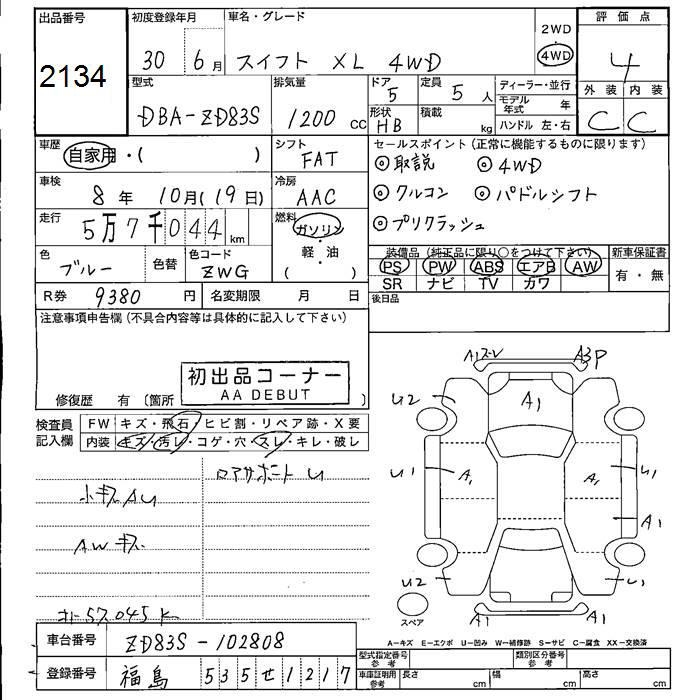 出品番号
2134
初度登録年月
30 6月
車名・グレード
スイフト XL 4WD
2WD
4WD
評価点
4
外装 内装
C C
型式
DBA-ZD83S
排気量
1200 cc
ドア
5
形状
HB
定員
5人
積載
kg
ディーラー・並行
モデル年式 年
ハンドル 左・右
車歴
自家用・( )
シフト
FAT
セールスポイント(正常に機能するものに限ります)
◎取説 ◎4WD
◎クルコン ◎パドルシフト
◎プリクラッシュ
車検
8年 10月(19日)
冷房
AAC
走行
5万7千044km
燃料
ガソリン
・
軽・油
( )
色
ブルー
色替
色コード
ZWG
装備品(純正品に限り○をつけて下さい)
PS PW ABS エアB AW
SR ナビ TV カワ
新車保証書
有・無
R券 9380円
名変期限 月 日
後日品
注意事項申告欄(不具合内容等は具体的に記入して下さい)
初出品コーナー
AA DEBUT
修復歴 有〔箇所 〕
検査員
記入欄
FW キズ・飛石・ヒビ割・リペア跡・X要
内装 キズ・汚レ・コゲ・穴・スレ・キレ・破レ
ロアサポート U
小キズAU
AWキズ
57,045K
A1 A3P
U2 A1
U1 A1 A1 U1
A1
U2 U1
A1 A1
スペア
A-キズ E-エクボ U-凹み W-補修跡 S-サビ C-腐食 XX-交換済
車台番号 ZD83S-102808
登録番号 福島 535せ1217
型式指定番号
参考
類別区分番号
参考
車庫証明用
参考
長さ cm 幅 cm 高さ cm